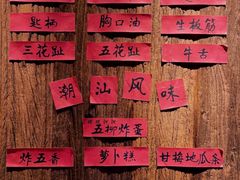 匙柄 胸口油 生板筋
三花趾 五花趾 牛舌
潮汕风味
五柳炸蛋
炸五香 萝卜糕 甘梅地瓜条